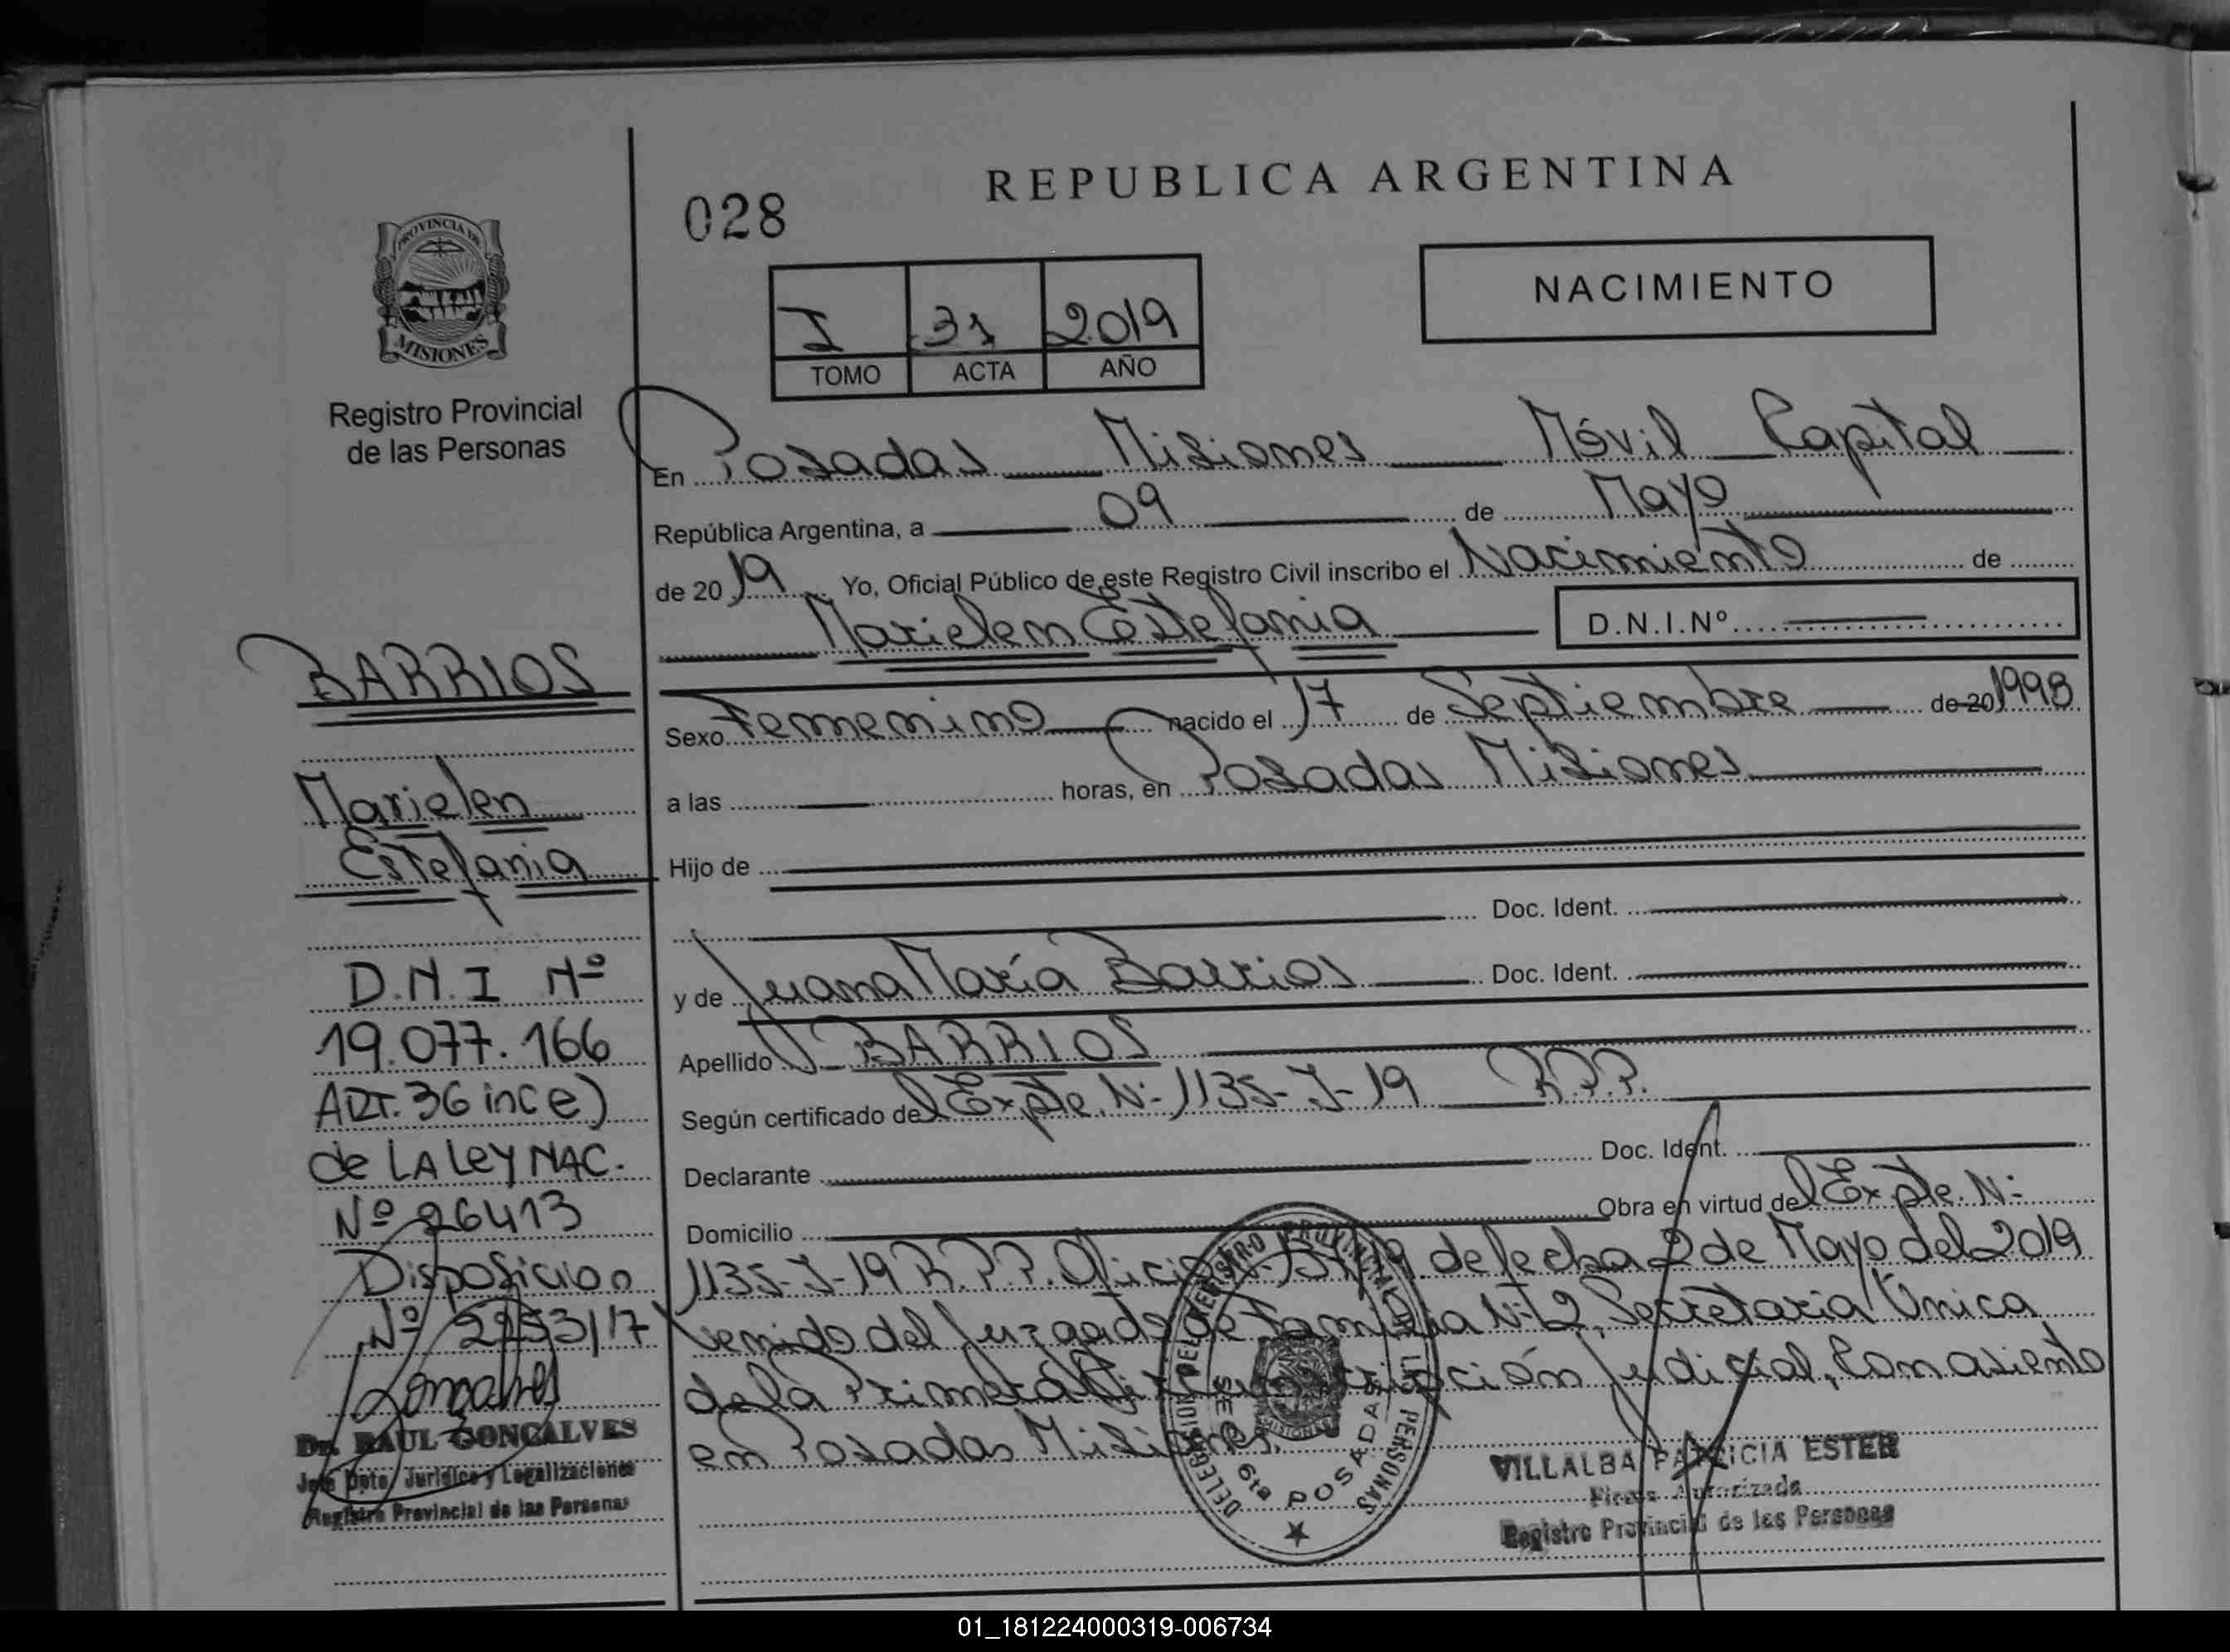 REPUBLICA ARGENTINA
028
NACIMIENTO
PROVINCIA DE
MISIONES
Registro Provincial
de las Personas
I 31 2019
TOMO ACTA AÑO
En Posadas Misiones Móvil Capital
República Argentina, a 09 de Mayo
de 2019 Yo, Oficial Público de este Registro Civil inscribo el Nacimiento de
Marielen Estefania D.N.I.Nº
Sexo Femenino nacido el 17 de Septiembre de 20 1998
a las horas, en Posadas Misiones
Hijo de
Doc. Ident.
y de Juana María Barrios Doc. Ident.
Apellido BARRIOS
Según certificado del Expte. Nº 1135-J-19 R.P.P.
Declarante Doc. Ident.
Domicilio Obra en virtud del Expte. Nº
1135-J-19 R.P.P. Oficio de fecha 2 de Mayo del 2019
venido del Juzgado de Familia Nº 2, Secretaria Única
de la Primera Circunscripción Judicial, Con asiento
en Posadas Misiones.
BARRIOS
Marielen
Estefania
D.N.I Nº
19.077.166
ART. 36 inc e)
de LA Ley NAC.
Nº 26413
Disposicion
Nº 2253/17
Dr. RAUL GONCALVES
Jefe Dpto. Jurídico y Legalizaciones
Registro Provincial de las Personas
DELEGACION DEL REGISTRO PROVINCIAL DE LAS PERSONAS
SECC 6ta POSADAS
MISIONES
VILLALBA PATRICIA ESTER
Firma Autorizada
Registro Provincial de las Personas
01_181224000319-006734